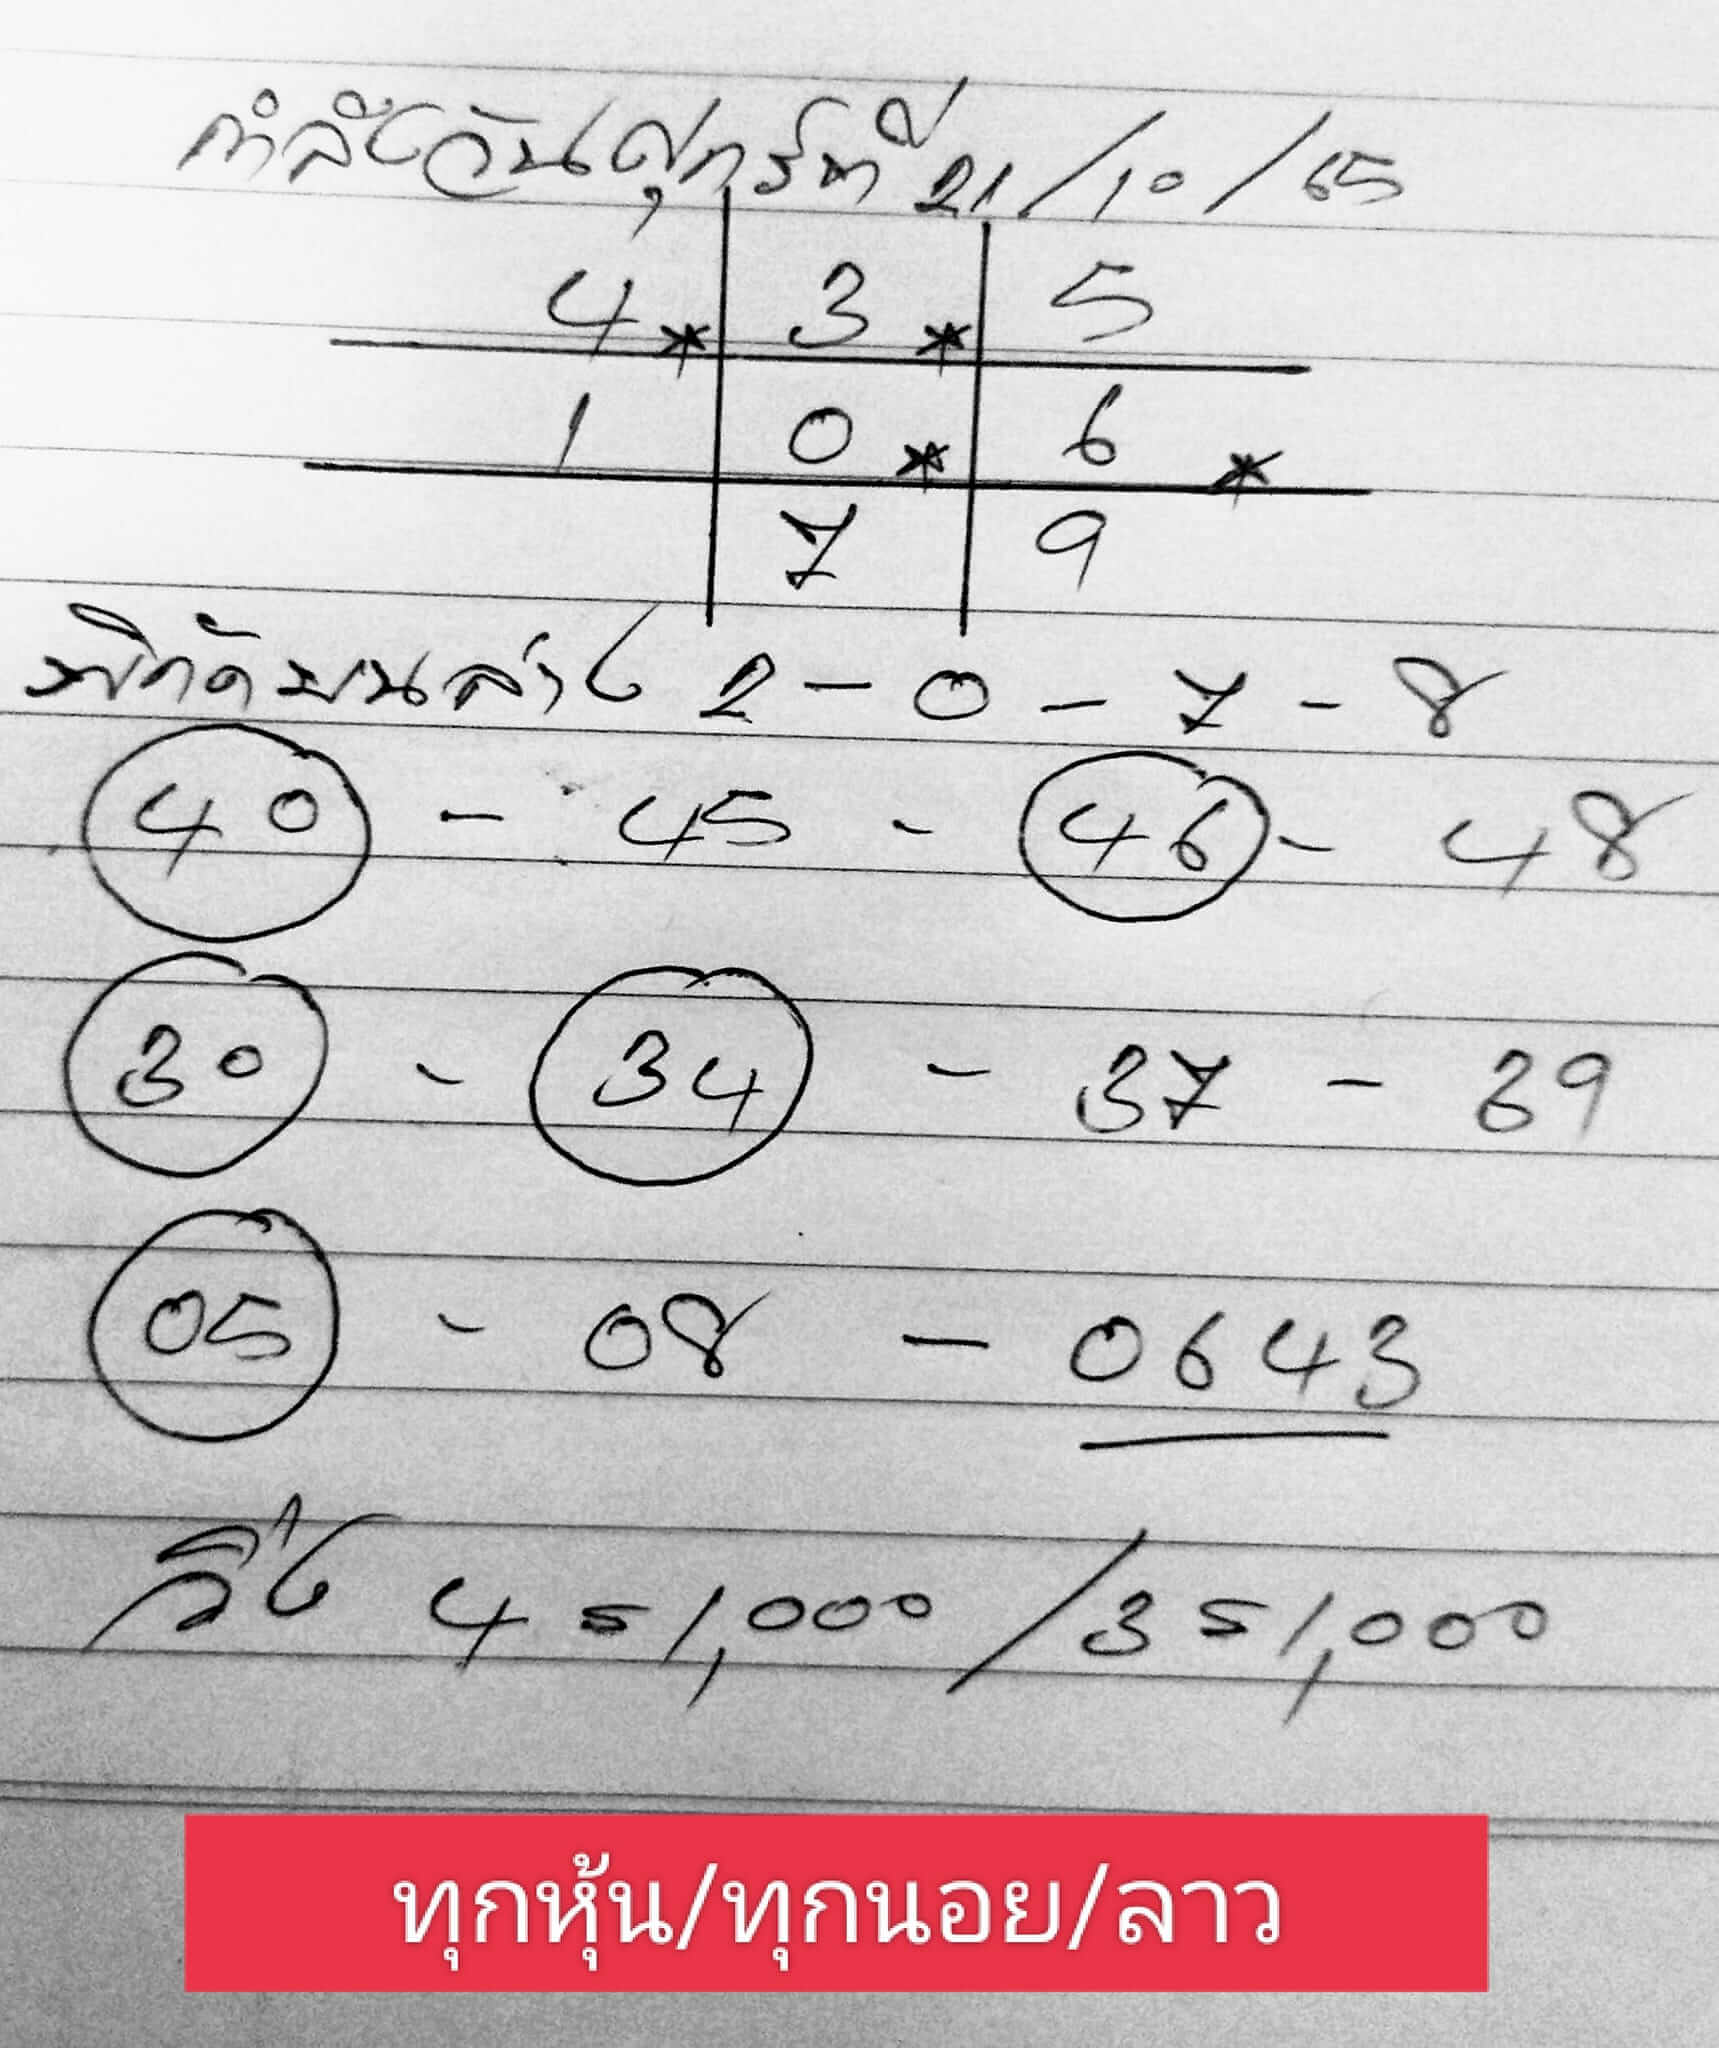 กำลังวันศุกร์ที่ 21/10/65
4* 3* 5
1 0* 6*
7 9
พิกัดบนล่าง 2-0-7-8
40 - 45 - 46 - 48
30 - 34 - 37 - 39
05 - 08 - 0643
วิ่ง 4=1,000/3=1,000
ทุกหุ้น/ทุกนอย/ลาว